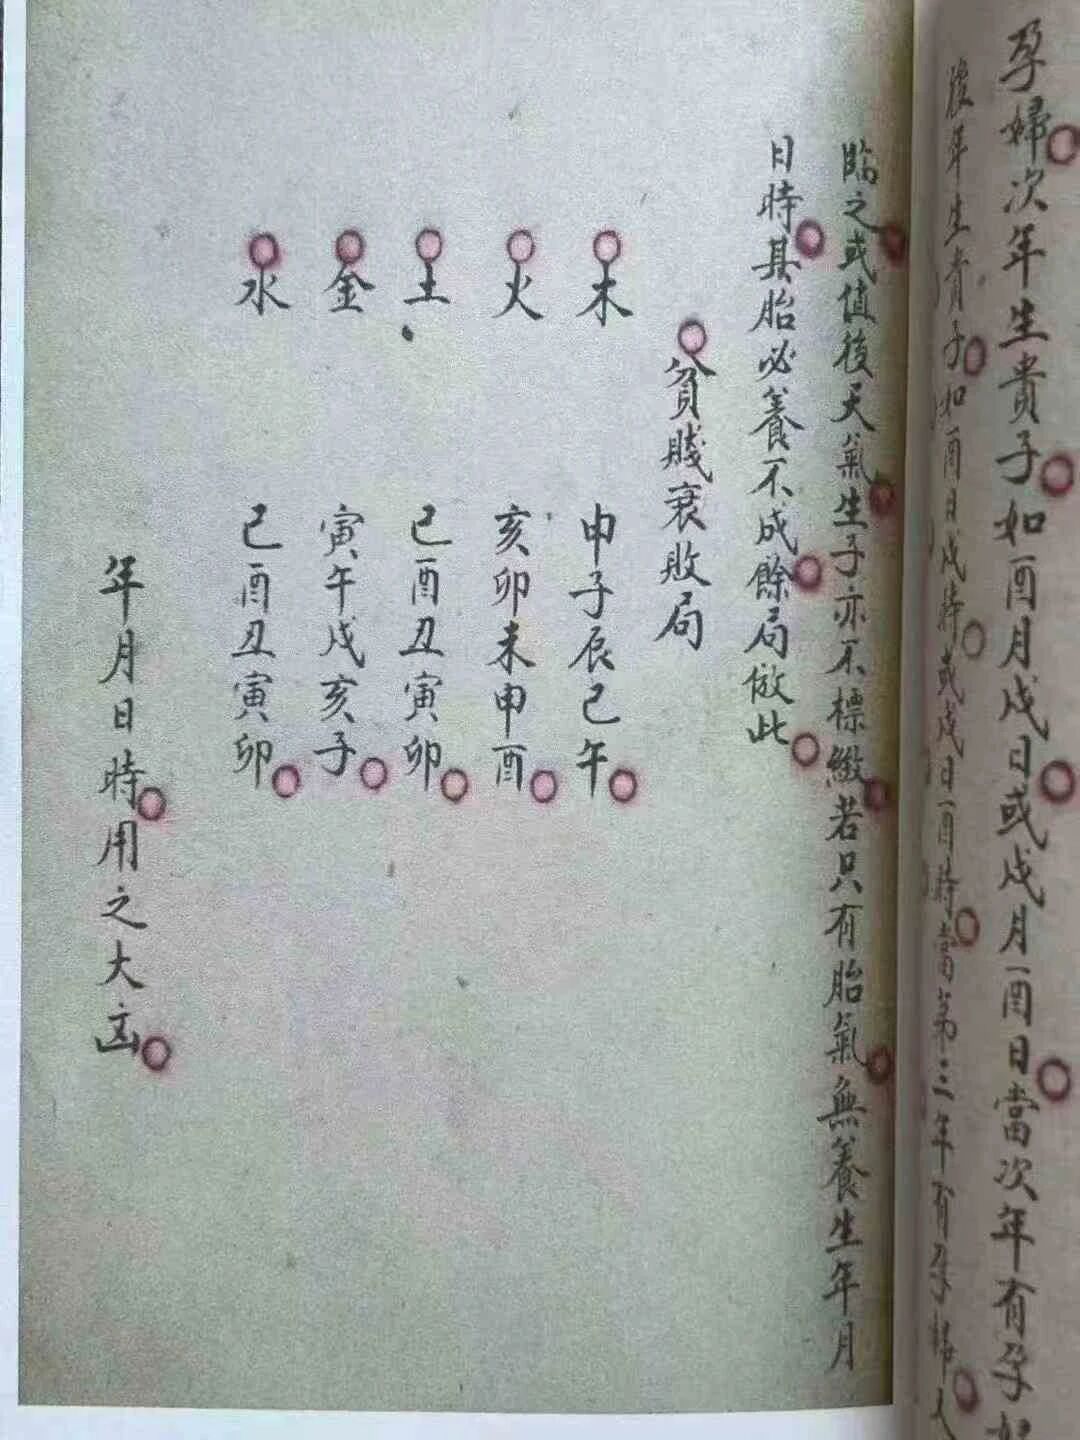 孕婦次年生貴子如酉月戌日或戌月酉日當次年有孕如
後年生貴子如酉日戌時或戌日酉時當第三年有孕婦人
臨之或值後天氣生子亦不標緻若只有胎氣無養生年月
日時其胎必養不成餘局倣此
貧賤衰敗局
木 申子辰巳午
火 亥卯未申酉
土 巳酉丑寅卯
金 寅午戌亥子
水 巳酉丑寅卯
年月日時用之大凶